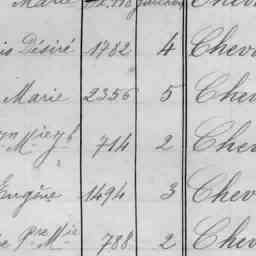 Marie
is Désiré 1782 4 Chev
Marie 2356 5 Chev
714 2 Chev
Eugène 1494 3 Chev
Pre Mie 788 2 Chev